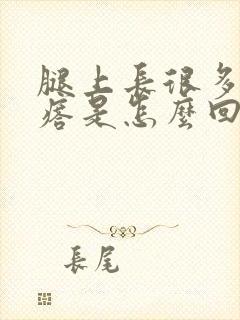 腿上長很多
痞是怎麼回
長尾